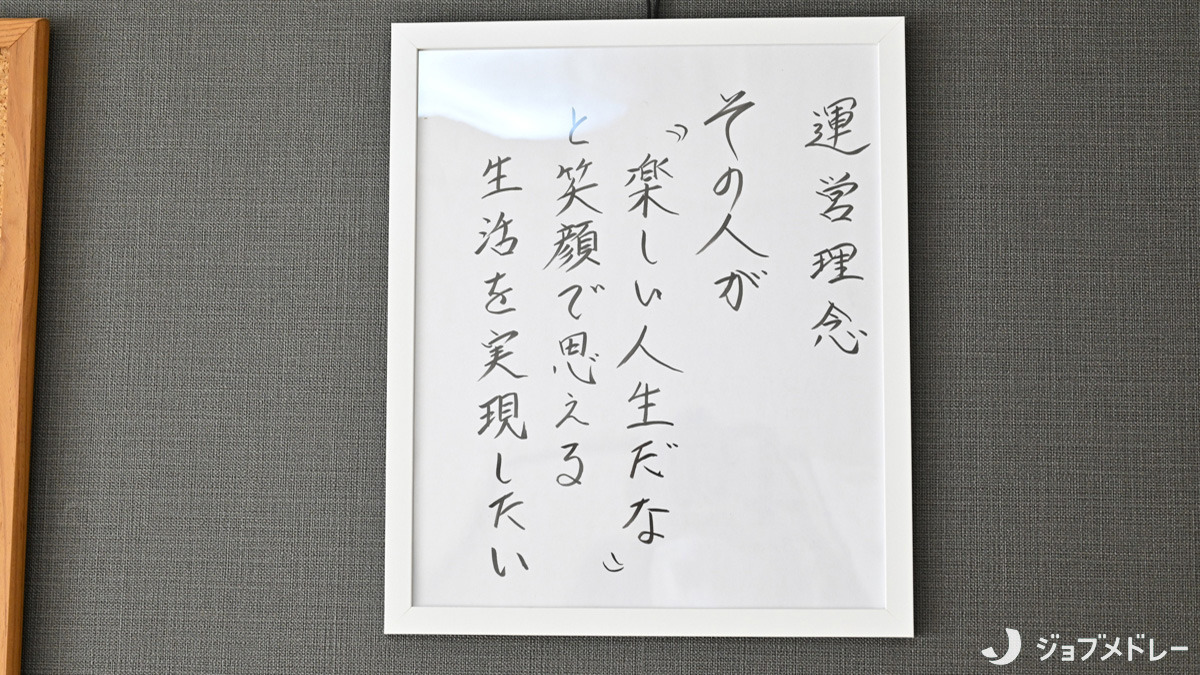 運営理念
その人が
〝楽しい人生だな〟
と笑顔で思える
生活を実現したい
ジョブメドレー